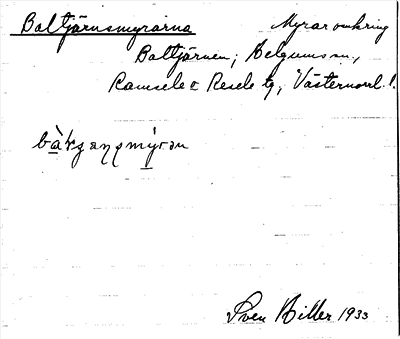 Baltjärnsmyrarna Myrar omkring
Baltjärnen; Helgums sn.,
Ramsele o. Resele tg, Västernorrl. l.
Sven Hiller 1933